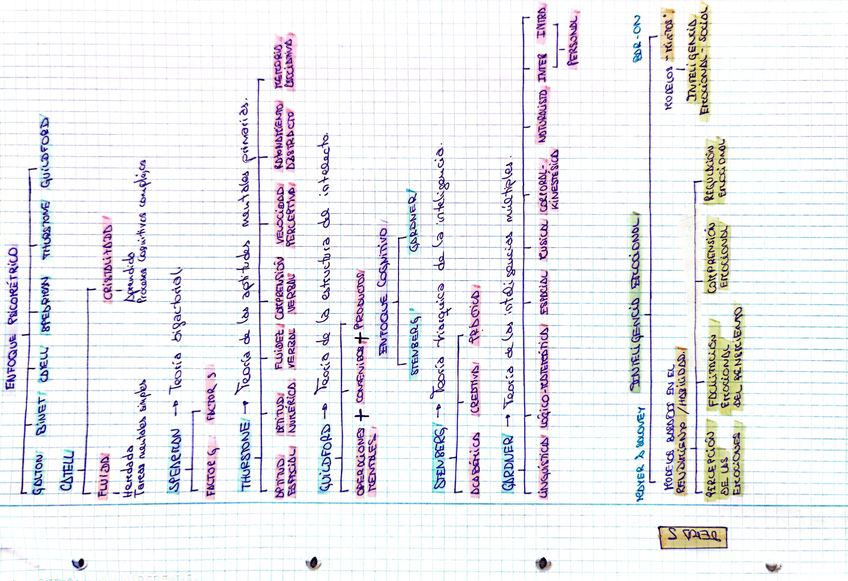 TEMA 5
ENFOQUE PSICOMÉTRICO
GALTON BINET/ CATELL SPEARMAN THURSTONE/ GUILDFORD
CATELL
FLUIDA/ CRISTALIZADA/
Heredada Aprendida
Tareas mentales simples Procesos cognitivos complejos
SPEARMAN → Teoría bifactorial
FACTOR G/ FACTOR S/
THURSTONE/ → Teoría de las aptitudes mentales primarias.
APTITUD APTITUD FLUIDEZ/ COMPRENSIÓN VELOCIDAD RAZONAMIENTO MEMORIA
ESPACIAL NUMÉRICA VERBAL VERBAL PERCEPTIVA/ ABSTRACTO ASOCIATIVA
GUILDFORD → Teoría de la estructura de intelecto.
OPERACIONES + CONTENIDOS + PRODUCTOS/
MENTALES/
ENFOQUE COGNITIVO/
STENBERG/ GARDNER/
STENBERG/ → Teoría triárquica de la inteligencia.
ACADÉMICA CREATIVA/ PRÁCTICA/
GARDNER/ → Teoría de las inteligencias múltiples.
LINGÜÍSTICA/ LÓGICO-MATEMÁTICA/ ESPACIAL MUSICAL CORPORAL- NATURALISTA INTER INTRA
KINESTÉSICA
PERSONAL
INTELIGENCIA EMOCIONAL/
MAYER & SALOVEY BAR-ON
MODELOS BASADOS EN EL MODELOS "MIXTOS"
RENDIMIENTO/HABILIDAD/ INTELIGENCIA
EMOCIONAL-SOCIAL
PERCEPCIÓN FACILITACIÓN/ COMPRENSIÓN REGULACIÓN
DE LAS EMOCIONAL EMOCIONAL EMOCIONAL
EMOCIONES/ DEL PENSAMIENTO